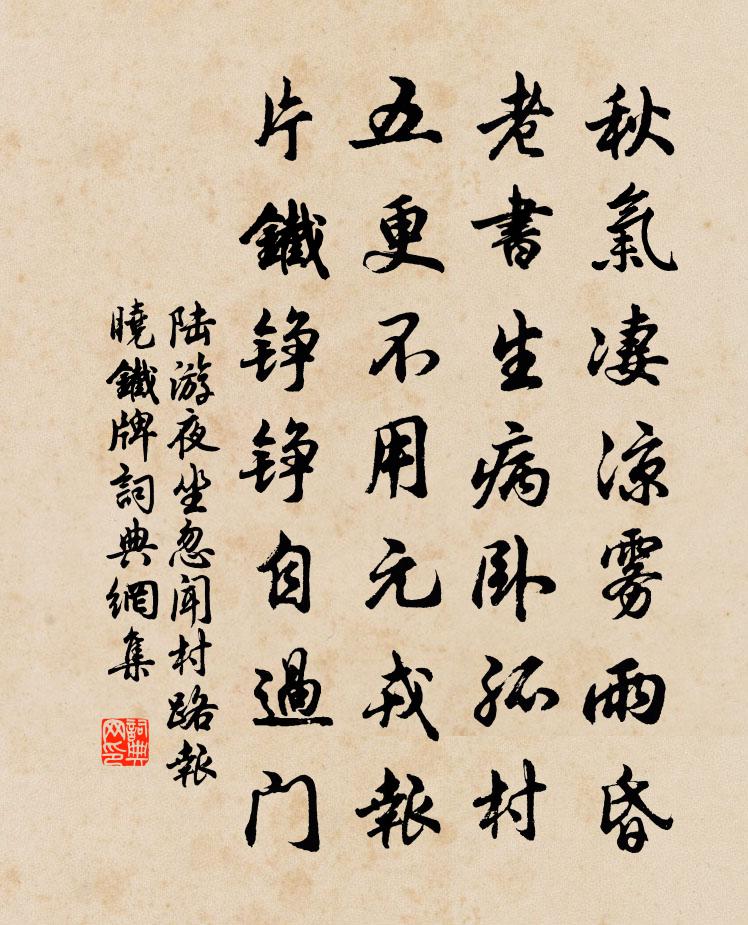 秋氣凄涼霧雨昏
老書生病卧孤村
五更不用元戎報
片鐵铮铮自過门
陆游夜坐忽闻村路報
曉鐵牌詞典網集
詞典网印